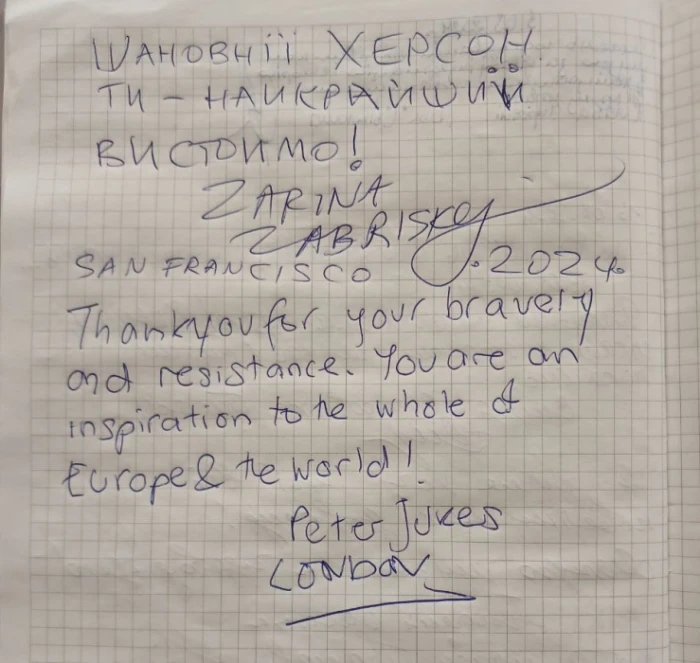 ШАНОВНІЇ ХЕРСОН
ТИ - НАИКРАЙШИЙ
ВИСТОИМО!
ZARINA
ZABRISKY
SAN FRANCISCO 2024
Thank you for your bravery
and resistance. You are an
inspiration to the whole of
Europe & the world!
Peter Jukes
LONDON